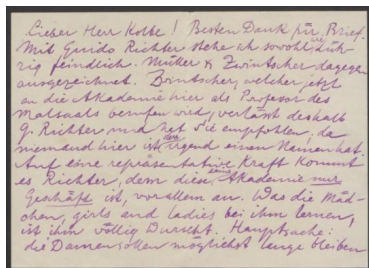 Lieber Herr Kolbe! Besten Dank für Brief.
Mit Guido Richter stehe ich sowohl wie Züh-
rig feindlich. Müller & Zwintscher dagegen
ausgezeichnet. Zwintscher, welcher jetzt
an die Akademie hier als Professor des
Malsaals berufen wird, verlässt deshalb
G. Richter und hat Sie empfohlen, da
niemand hier ist, der irgend einen Namen hat.
Auf eine repräsentative Kraft kommt
es Richter, dem diese seine Akademie nur
Geschäft ist, vor allem an. Was die Mäd-
chen, girls and ladies bei ihm lernen,
ist ihm völlig Durscht. Hauptsache:
die Damen sollen möglichst lange bleiben